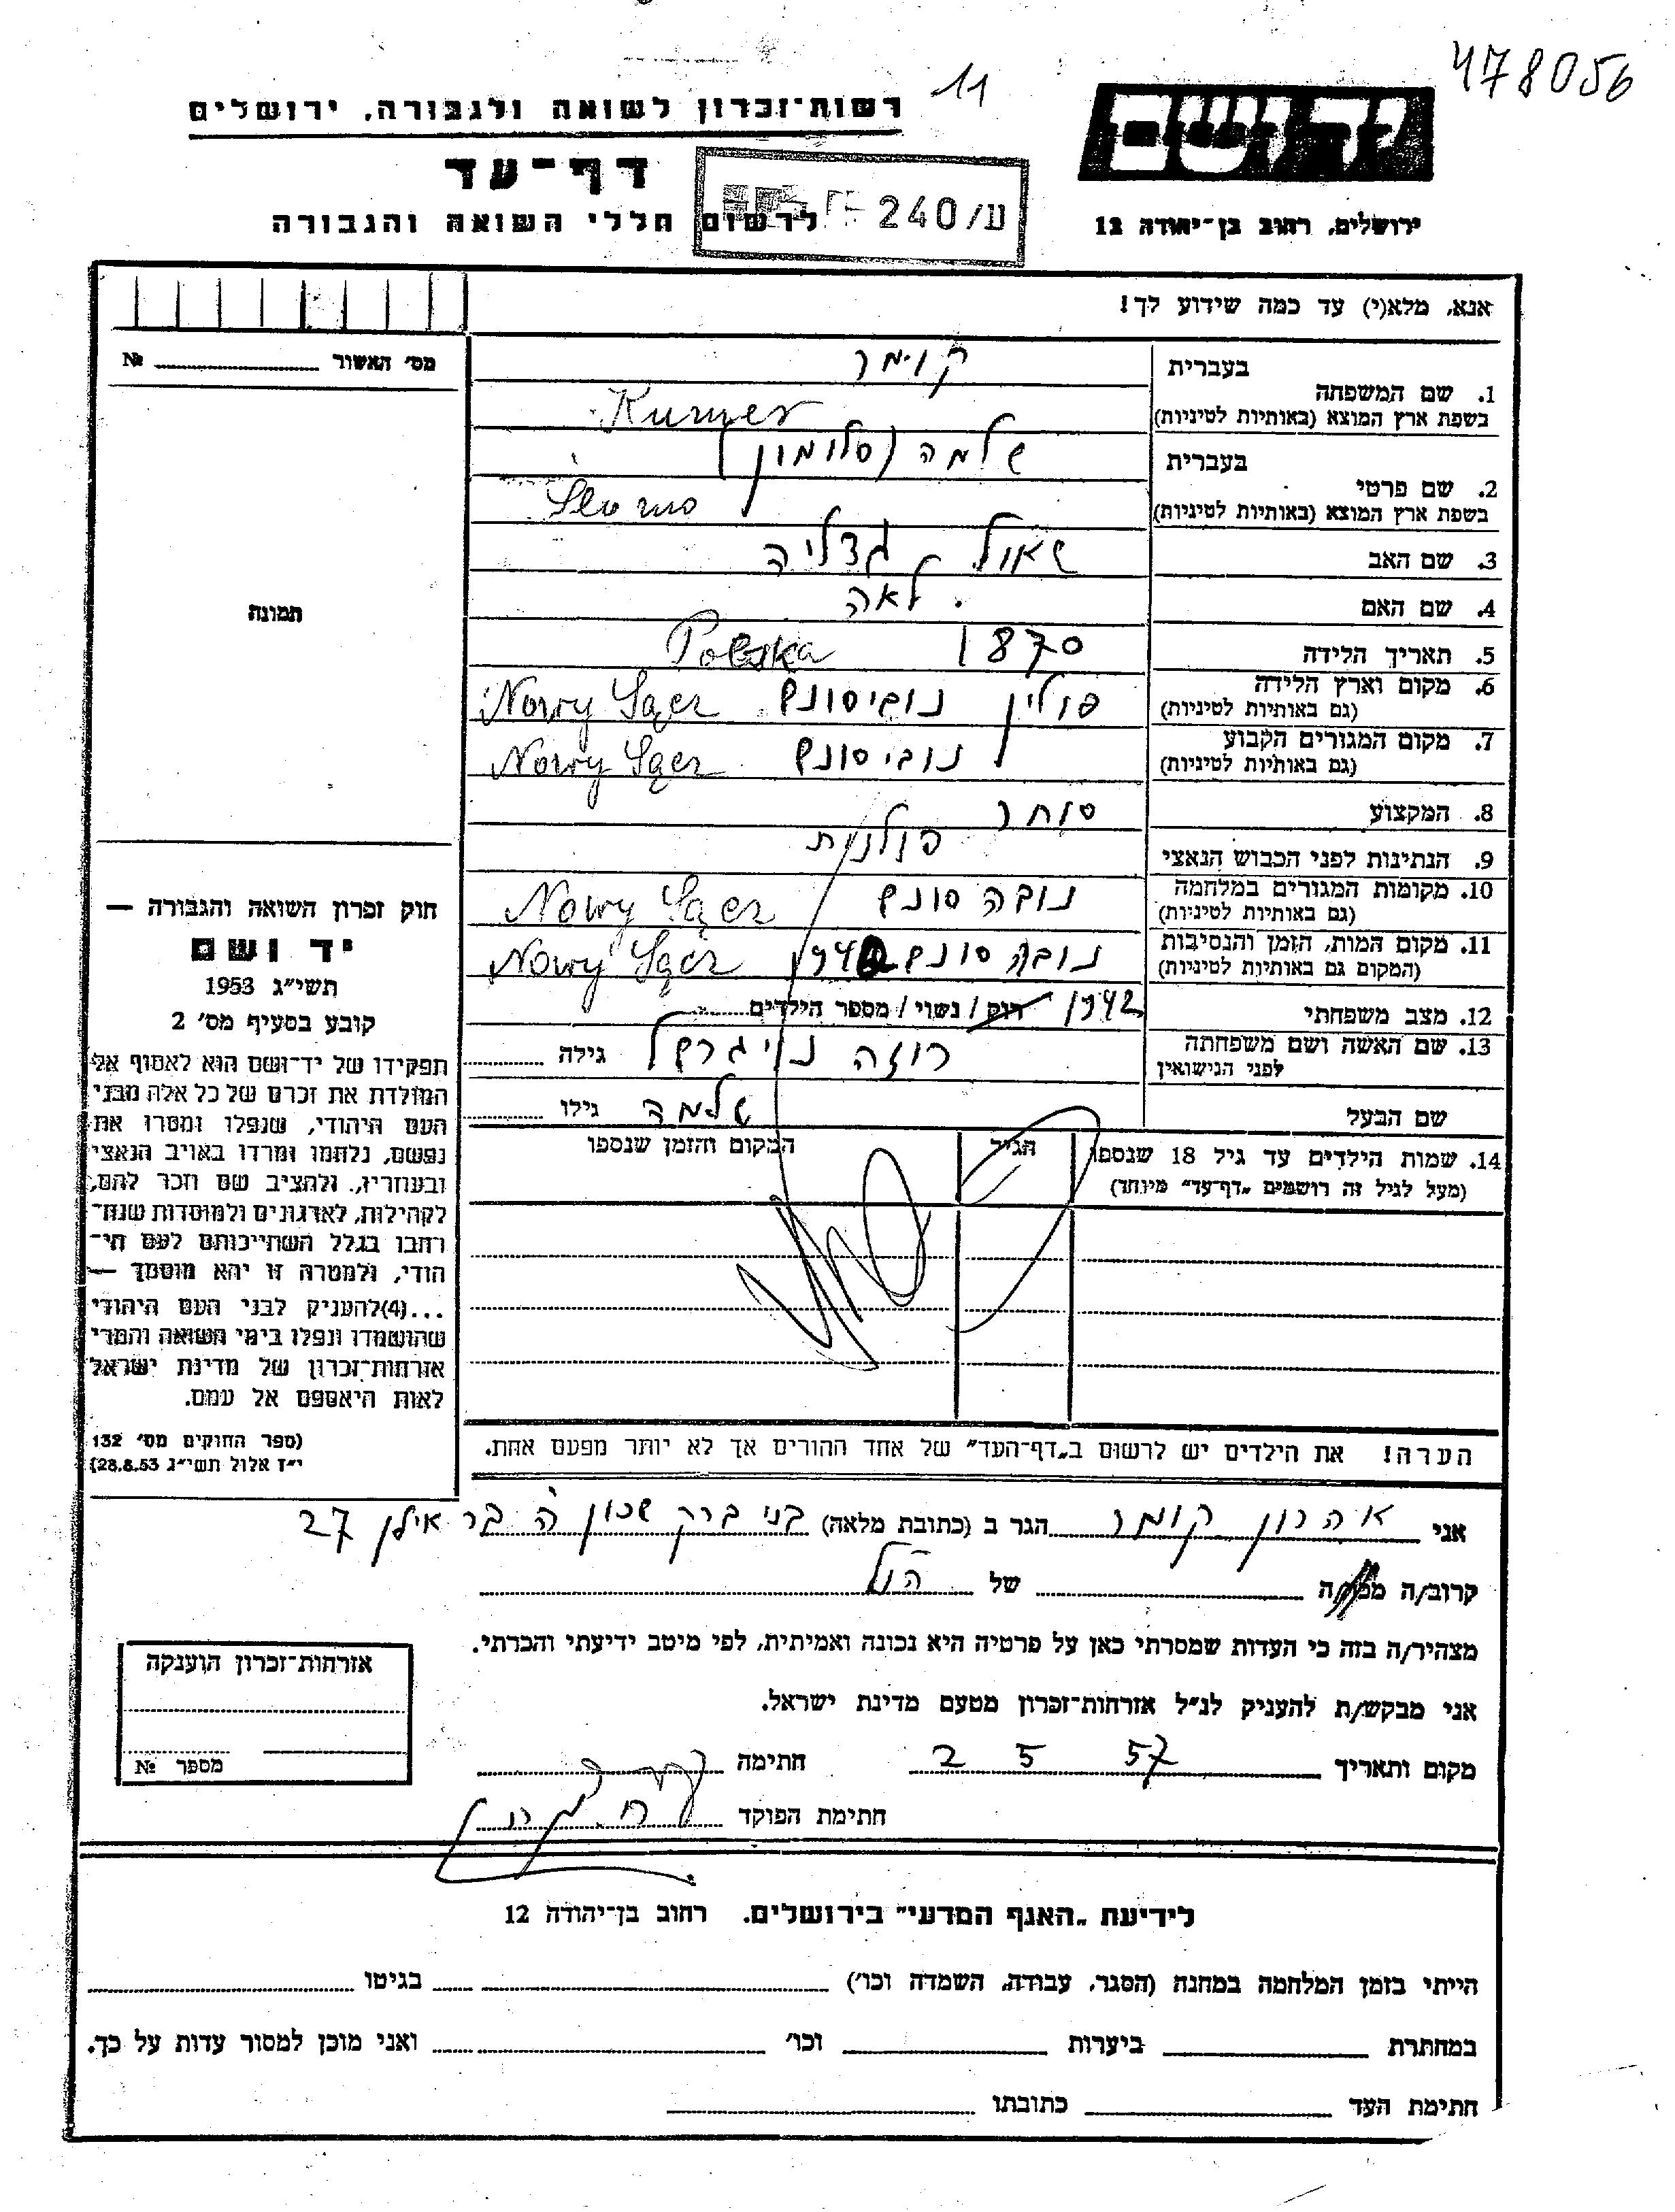 478056
11
יד ושם
ירושלים, רחוב בן־יהודה 12
רשות־זכרון לשואה ולגבורה, ירושלים
דף־עד
לרשום חללי השואה והגבורה
240/ע
אנא, מלא(י) עד כמה שידוע לך!
מס' האשור № 
1. שם המשפחה בעברית קומר
בשפת ארץ המוצא (באותיות לטיניות) Kumer
2. שם פרטי בעברית שלמה (סלומון)
בשפת ארץ המוצא (באותיות לטיניות)
3. שם האב שאול גדליה
4. שם האם לאה
5. תאריך הלידה 1870 Polska
6. מקום וארץ הלידה פולין נוביסונץ Nowy Sącz
(גם באותיות לטיניות)
7. מקום המגורים הקבוע נוביסונץ Nowy Sącz
(גם באותיות לטיניות)
8. המקצוע סוחר
9. הנתינות לפני הכבוש הנאצי פולנית
10. מקומות המגורים במלחמה נובה סונץ Nowy Sącz
(גם באותיות לטיניות)
11. מקום המות, הזמן והנסיבות נובה סונץ Nowy Sącz
(המקום גם באותיות לטיניות)
12. מצב משפחתי 1942 רווק / נשוי / מספר הילדים
13. שם האשה ושם משפחתה רוזה גילה
לפני הנישואין
שם הבעל שלמה גילו
14. שמות הילדים עד גיל 18 שנספו הגיל המקום והזמן שנספו
(מעל לגיל זה רושמים „דף־עד" מיוחד)
הערה! את הילדים יש לרשום ב„דף־העד" של אחד ההורים אך לא יותר מפעם אחת.
תמונה
חוק זכרון השואה והגבורה —
יד ושם
תשי"ג 1953
קובע בסעיף מס' 2
תפקידו של יד־ושם הוא לאסוף אל
המולדת את זכרם של כל אלה מבני
העם היהודי, שנפלו ומסרו את
נפשם, נלחמו ומרדו באויב הנאצי
ובעוזריו, ולהציב שם וזכר להם,
לקהילות, לארגונים ולמוסדות שנח־
רבו בגלל השתייכותם לעם הי־
הודי, ולמטרה זו יהא מוסמך —
...(4) להעניק לבני העם היהודי
שהושמדו ונפלו בימי השואה והמרי
אזרחות־זכרון של מדינת ישראל
לאות היאספם אל עמם.
(ספר החוקים מס' 132
י"ז אלול תשי"ג 28.8.53)
אני אהרון קומר הגר ב (כתובת מלאה) בני ברק שכון ה' בר אילן 27
קרוב/ה של הנ"ל
מצהיר/ה בזה כי העדות שמסרתי כאן על פרטיה היא נכונה ואמיתית, לפי מיטב ידיעתי והכרתי.
אני מבקש/ת להעניק לנ"ל אזרחות־זכרון מטעם מדינת ישראל.
מקום ותאריך 2 5 57 חתימה
חתימת הפוקד
אזרחות־זכרון הוענקה
מספר №
לידיעת „האגף המדעי" בירושלים. רחוב בן־יהודה 12
הייתי בזמן המלחמה במחנה (הסגר, עבודה, השמדה וכו') בגיטו
במחתרת ביערות וכו' ואני מוכן למסור עדות על כך.
חתימת העד כתובתו